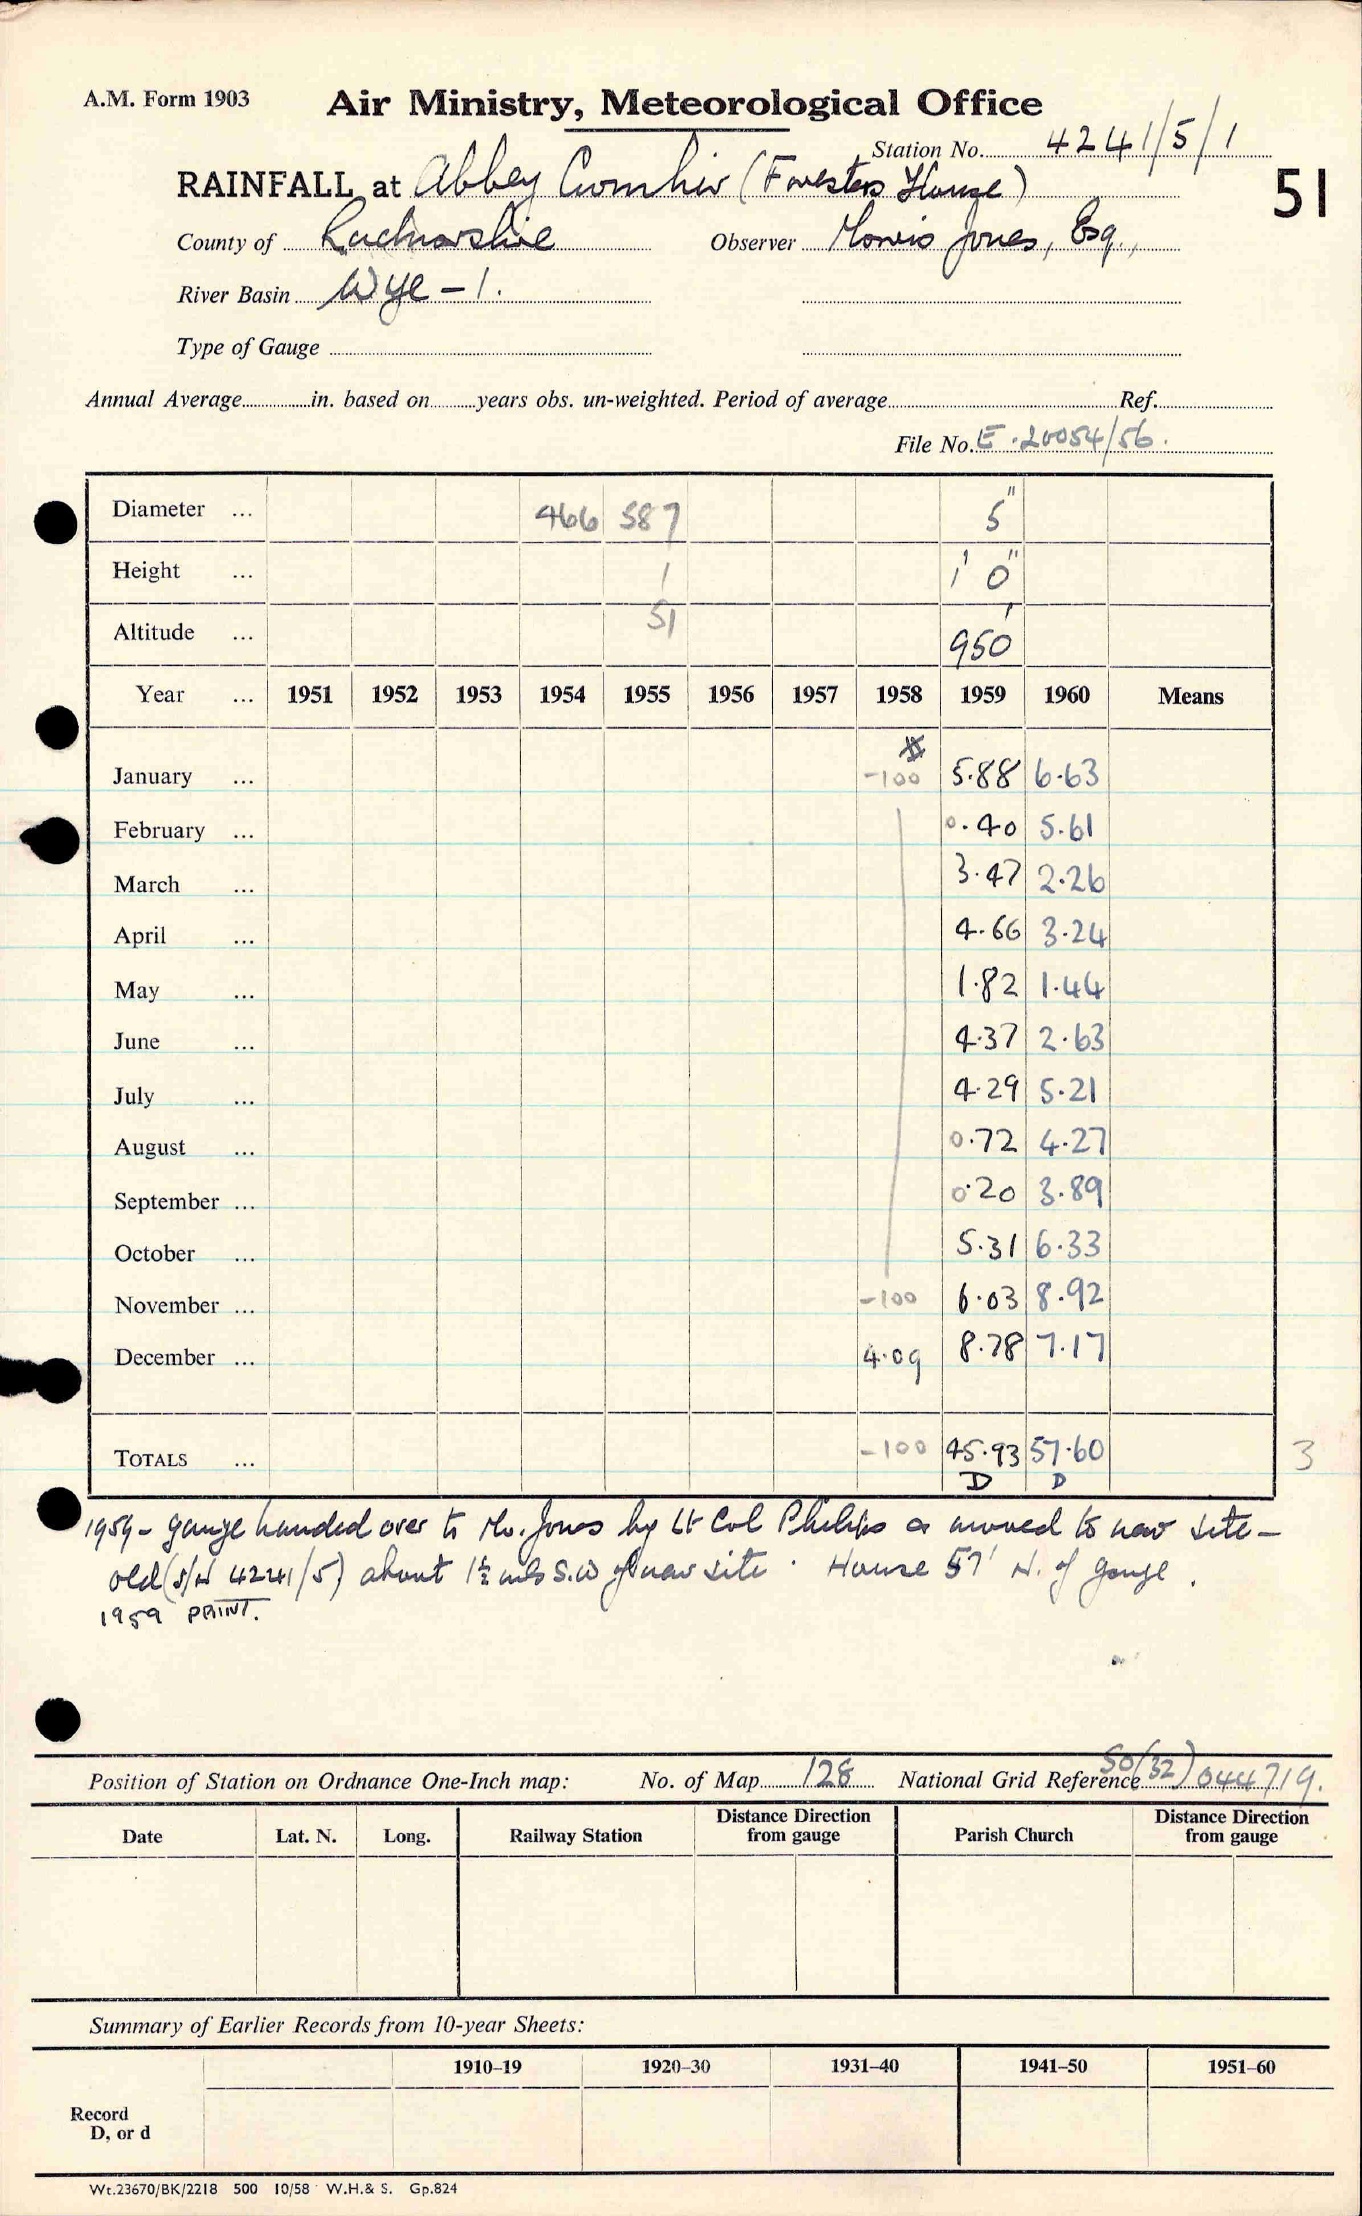 A.M. Form 1903 Air Ministry, Meteorological Office
Station No. 4241/5/1
RAINFALL at Abbey Cwmhir (Foresters House) 51
County of Radnorshire Observer Morris Jones, Esq.,
River Basin Wye - 1.
Type of Gauge
Annual Average in. based on years obs. un-weighted. Period of average Ref.
File No. E.20054/56.
Diameter ... 466 587 5"
Height ... 1 1' 0"
Altitude ... 51 950'
Year ... 1951 1952 1953 1954 1955 1956 1957 1958 1959 1960 Means
January ... -100 5.88 6.63
February ... 0.40 5.61
March ... 3.47 2.26
April ... 4.66 3.24
May ... 1.82 1.44
June ... 4.37 2.63
July ... 4.29 5.21
August ... 0.72 4.27
September ... 0.20 3.89
October ... 5.31 6.33
November ... -100 6.03 8.92
December ... 4.09 8.78 7.17
TOTALS ... -100 45.93 57.60 3
D D
1959 - gauge handed over to Mr. Jones by Lt Col Philips & moved to new site -
old (S/N 4241/5) about 1½ mls S.W of new site. House 57' N. of gauge.
1959 PRINT.
Position of Station on Ordnance One-Inch map: No. of Map 128 National Grid Reference SO(32)044719.
Date Lat. N. Long. Railway Station Distance Direction from gauge Parish Church Distance Direction from gauge
Summary of Earlier Records from 10-year Sheets:
1910–19 1920–30 1931–40 1941–50 1951–60
Record
D, or d
Wt.23670/BK/2218 500 10/58 W.H.& S. Gp.824